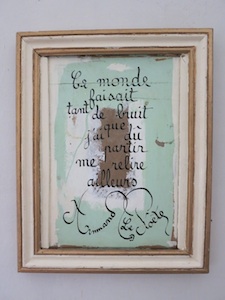 Ce monde
faisait
tant de bruit
que
j'ai dû
partir
me relire
ailleurs
Armand Le Poête